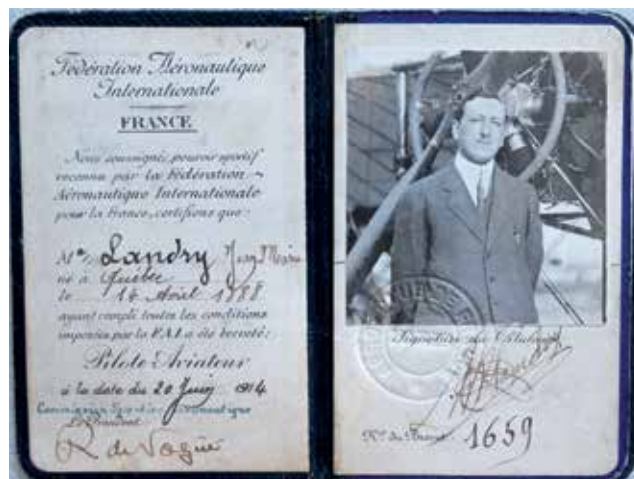 Fédération Aéronautique
Internationale
FRANCE
Nous soussignés, pouvoir sportif
reconnu par la Fédération
Aéronautique Internationale
pour la France, certifions que:
Mr Landry Jean
né à Québec
le 14 Août 1888
ayant rempli toutes les conditions
imposées par la F.A.I. a été breveté:
Pilote-Aviateur
à la date du 20 Juin 1914
Commission Sportive Aéronautique
Le Président
R de Vogüé
Signature du Titulaire
No du Brevet 1659